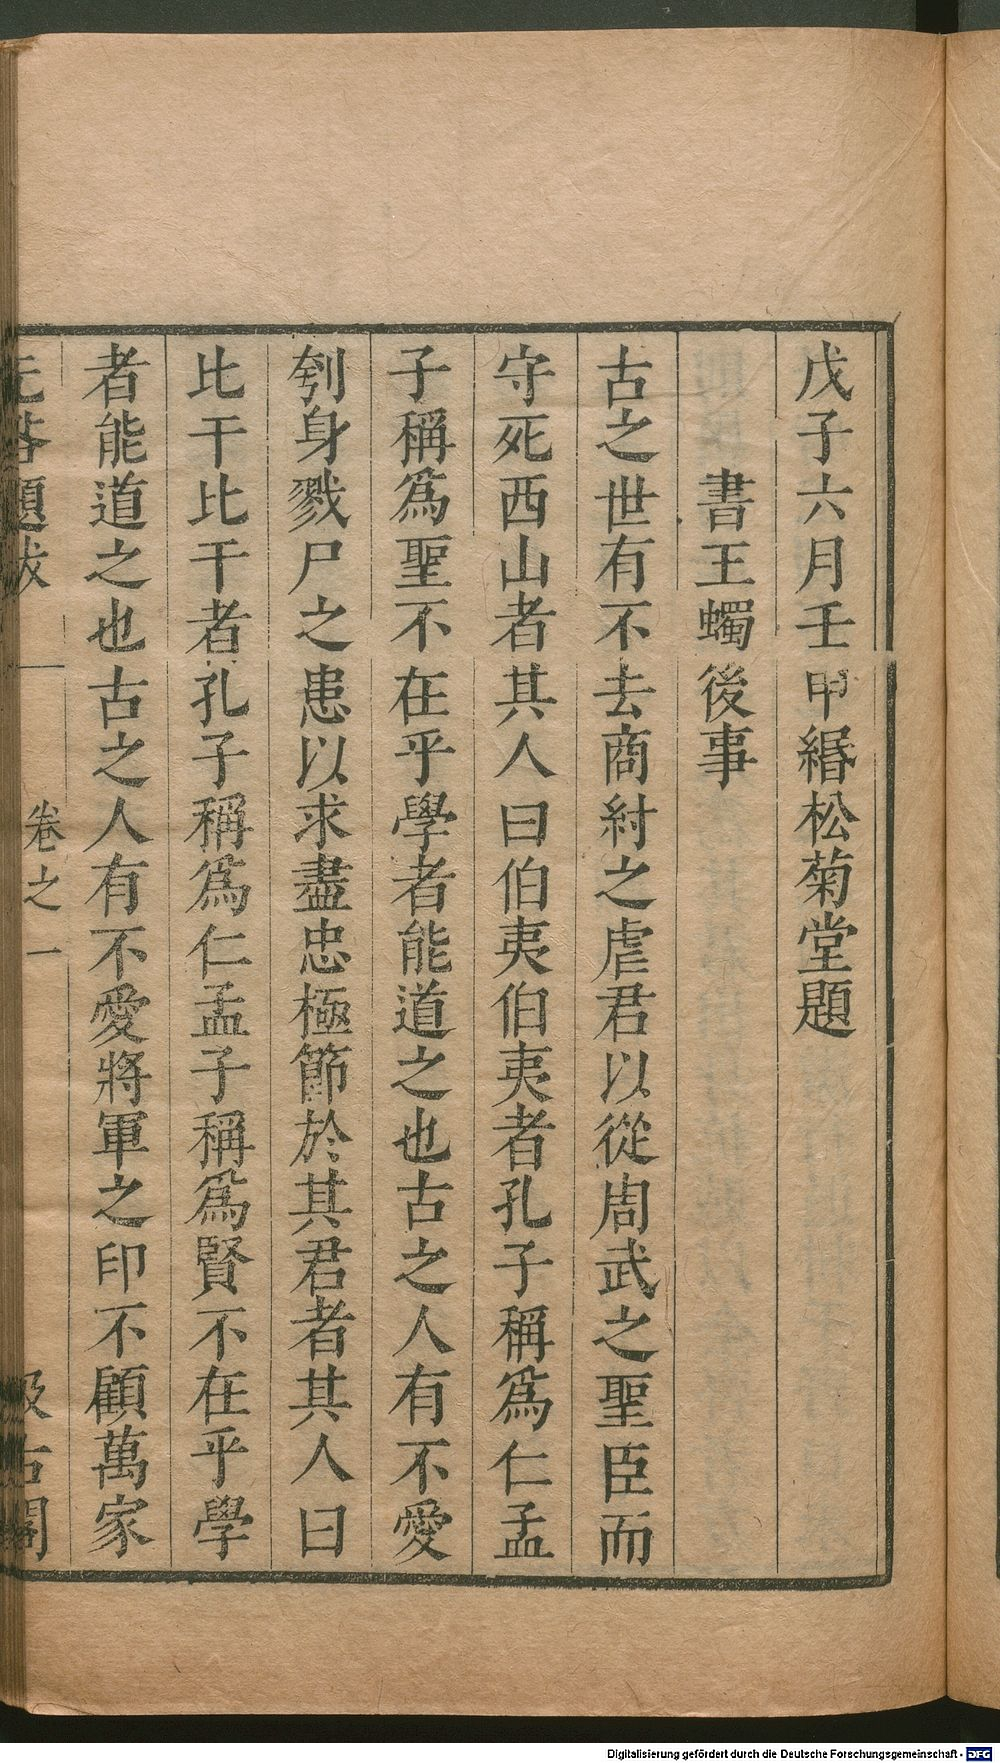 戊子六月壬申緡松菊堂題
書王蠋後事
古之世有不去商紂之虐君以從周武之聖臣而
守死西山者其人曰伯夷伯夷者孔子稱爲仁孟
子稱爲聖不在乎學者能道之也古之人有不愛
刳身戮尸之患以求盡忠極節於其君者其人曰
比干比干者孔子稱爲仁孟子稱爲賢不在乎學
者能道之也古之人有不愛將軍之印不顧萬家
无咎題跋 卷之一 汲古閣
Digitalisierung gefördert durch die Deutsche Forschungsgemeinschaft - DFG